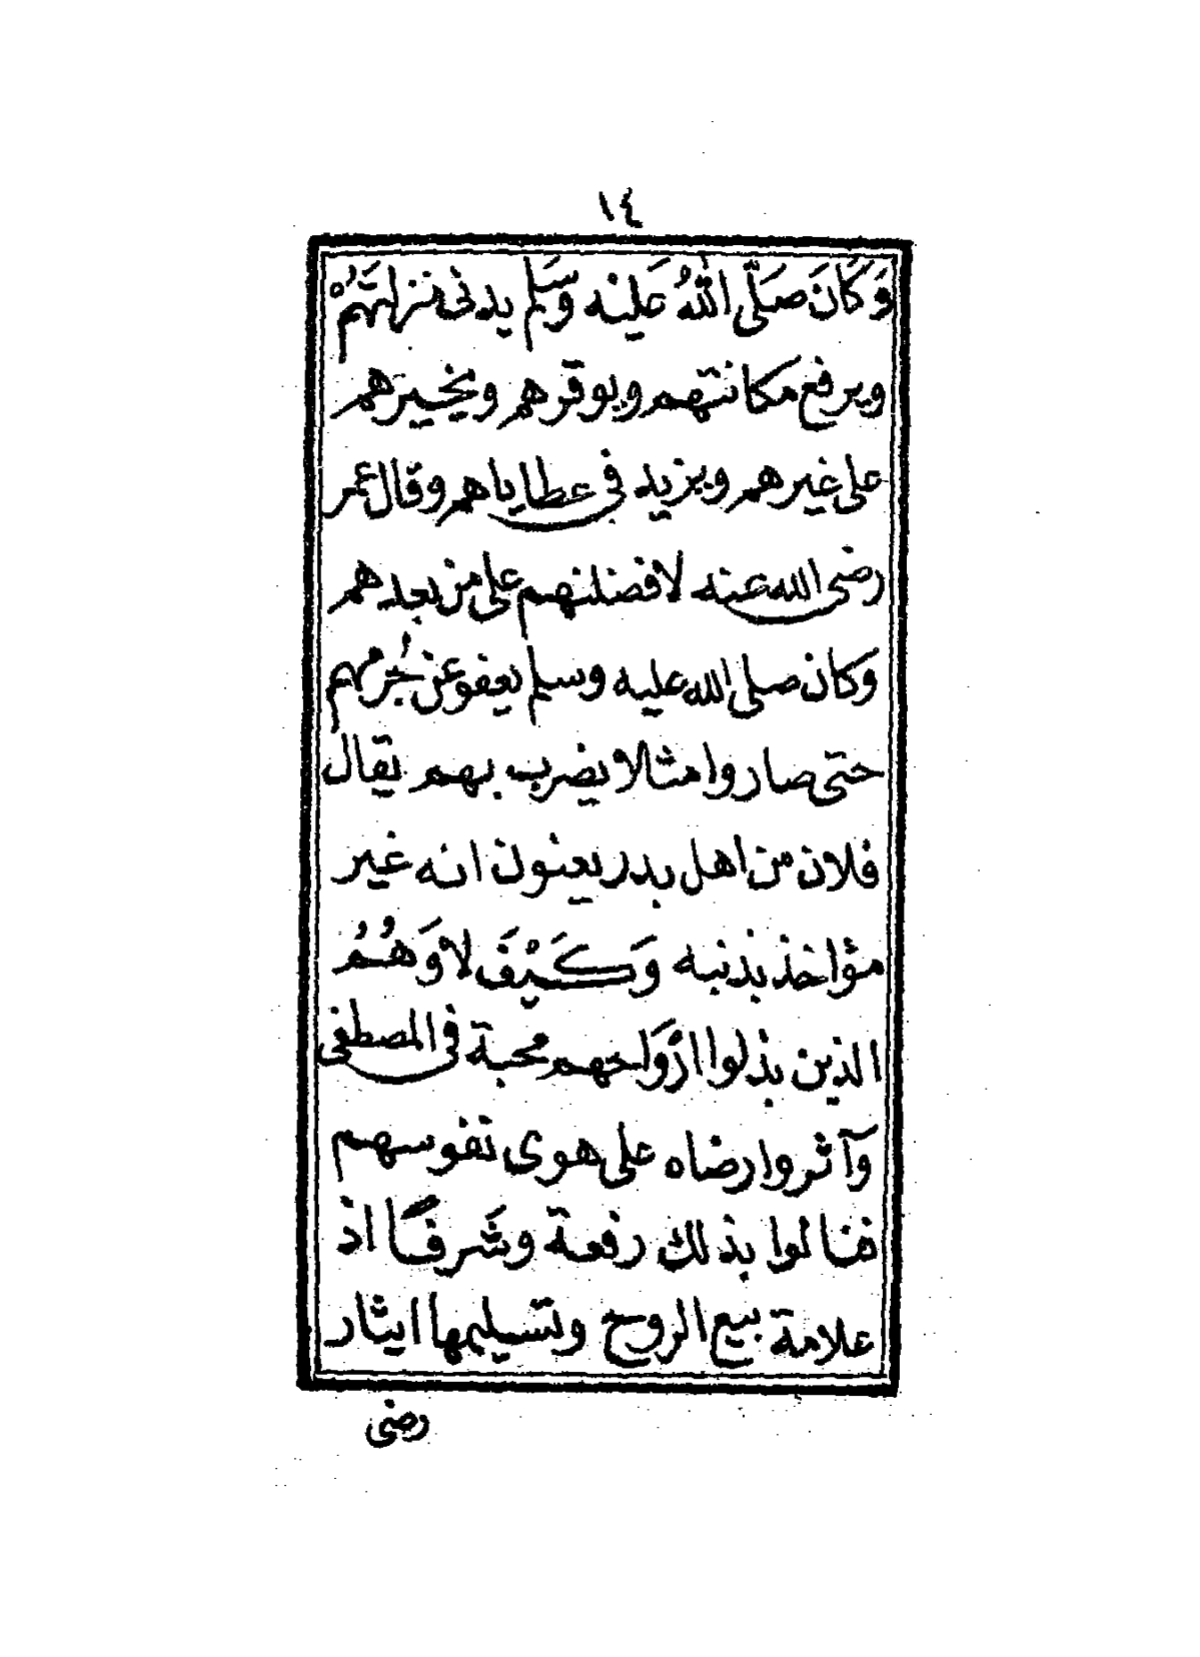 ١٤
وَكَانَ صَلَّى اللهُ عَلَيْه وَسَلم يدنى منزلتَهُمْ
ويرفع مكانتهم ويوقرهم ويخيرهم
على غيرهم ويزيد فى عطاياهم وقال عمر
رضى الله عنه لافضلنهم على من بعدهم
وكان صلى الله عليه وسلم يعفو عن جُرمهم
حتى صاروا مثالا يضرب بهم يقال
فلان من اهل بدر يعنون انه غير
مؤاخذ بذنبه وَكَيْفَ لاَوَهُمُ
الذين بذلوا ارْوَاحهم محبة فى المصطفى
وآثروا رضاه على هوى نفوسهم
فنالوا بذلك رفعة وشَرفًا اذ
علامة بيع الروح وتسليمها ايثار
رضى